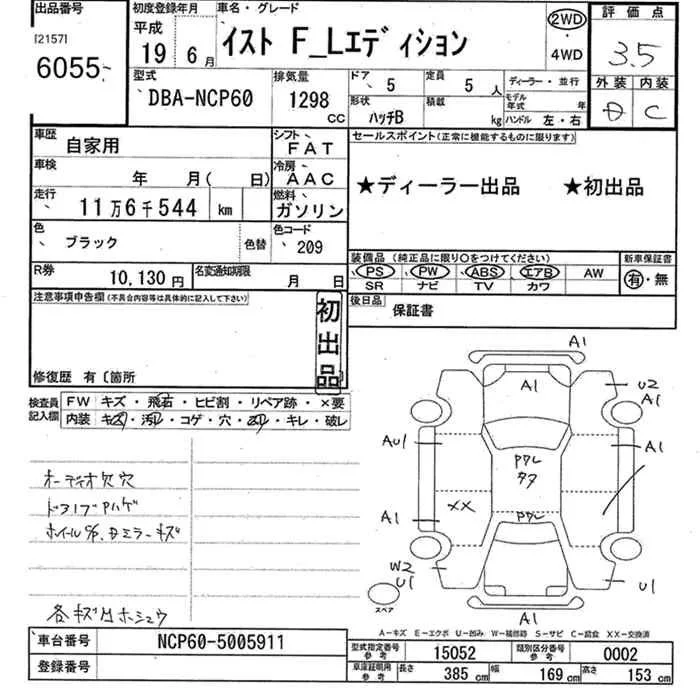 出品番号
[2157]
6055
初度登録年月
平成
19 6 月
車名・グレード
イスト F_Lエディション
2WD
・
4WD
評価点
3.5
外装 内装
D C
型式
DBA-NCP60
排気量
1298 CC
ドア 5
定員 5 人
形状 ハッチB
積載 kg
ディーラー・並行
モデル年式 年
ハンドル 左・右
車歴 自家用
シフト FAT
車検 年 月( 日)
冷房 AAC
走行 11万6千544 km
燃料 ガソリン
色 ブラック 色替
色コード 209
R券 10,130 円
名変通知期限 月 日
セールスポイント(正常に機能するものに限ります)
★ディーラー出品 ★初出品
装備品(純正品に限り○をつけてください)
PS PW ABS エアB AW
SR ナビ TV カワ
新車保証書
有・無
後日品 保証書
注意事項申告欄(不具合内容等は具体的に記入して下さい)
初出品
修復歴 有〔箇所
検査員記入欄
FW キズ・飛石・ヒビ割・リペア跡・×要
内装 キズ・汚れ・コゲ・穴・ヌレ・キレ・破レ
オーディオ欠穴
ドアノブAハゲ
各キズ凹ホシュウ
A1
A1
U2
A1
AU1
A1
XX
A1
W2
U1
U1
A1
スペア
A−キズ E−エクボ U−凹み W−補修跡 S−サビ C−腐食 XX−交換済
車台番号 NCP60-5005911
登録番号
型式指定番号 参考 15052
類別区分番号 参考 0002
車庫証明用 参考 長さ 385 cm 幅 169 cm 高さ 153 cm